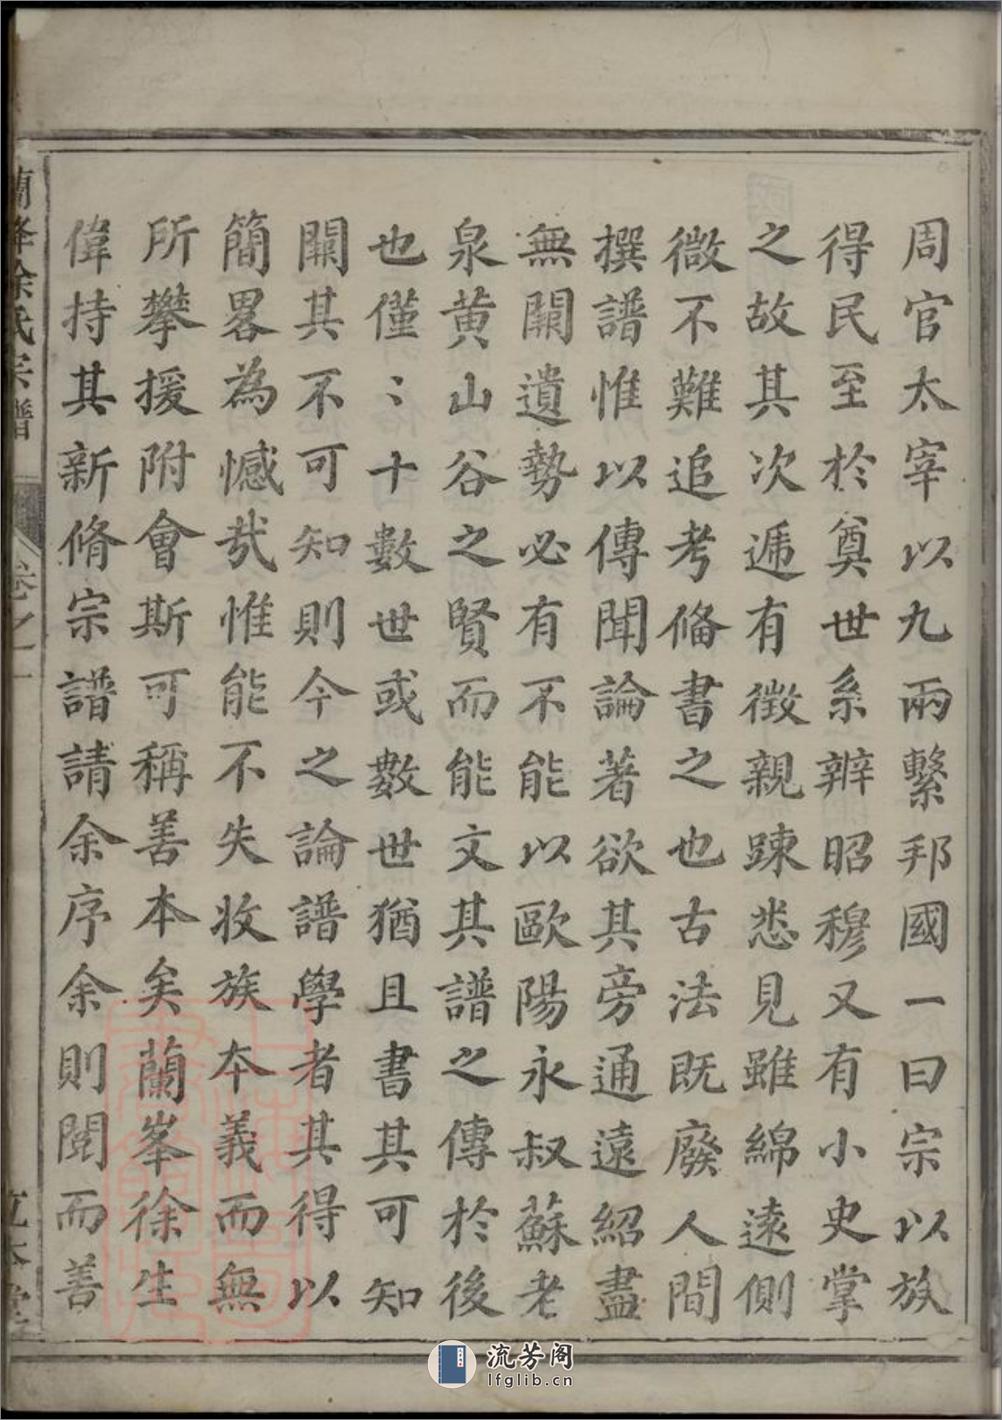 周官太宰以九兩繫邦國一曰宗以族
得民至於奠世系辨昭穆又有小史掌
之故其次遞有徵親踈悉見雖綿遠側
微不難追考脩書之也古法既廢人間
撰譜惟以傳聞論著欲其旁通遠紹盡
無闕遺勢必有不能以歐陽永叔蘇老
泉黄山谷之賢而能文其譜之傳於後
也僅〻十數世或數世猶且書其可知
闕其不可知則今之論譜學者其得以
簡畧為憾㢤惟能不失收族本義而無
所攀援附會斯可稱善本矣蘭峯徐生
偉持其新脩宗譜請余序余則閱而善
蘭峯徐氏宗譜
卷之一
立本堂
流芳阁
lfglib.cn